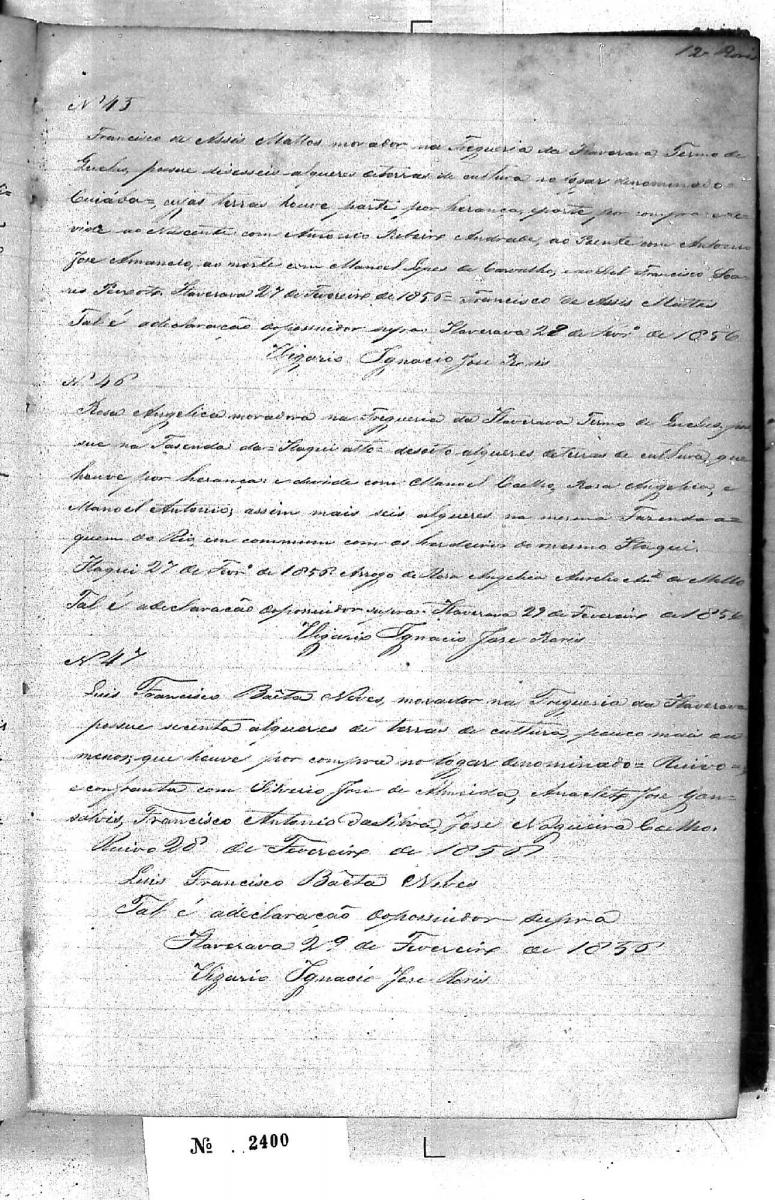 12
Nº 45
Francisco de Assis Mattos morador na Fregueria da Itaverava Termo de
Queluz, possue diseseis alqueres deterras de cultura no logar denominado=
Cuiaba=, cujas terras houve parte por herança, eparte por compra: e de=
vide ao Nascente com Antonio Ribeiro Andrade, ao Poente com Antonio
Jose Amancio, ao norte com Manoel Lopes de Carvalho, e ao Sul Francisco Soa=
res Peixoto. Itaverava 27 de Fevereiro de 1856= Francisco de Assis Mattos
Tal é adeclaração dopossuidor supra. Itaverava 28 de Fevrº de 1856
Vigario Ignacio Jose
Nº 46
Rosa Angelica moradora na Fregueria da Itaverava Termo de Queluz, pos
sue na Fasenda do= Itaqui atto= desoito alqueres deterras de cultura, que
houve por herança: e devide com Manoel Coelho, Rosa Angelica, e
Manoel Antonio; assim mais seis alqueres na mesma Fazenda a=
quem do Rio, em commum com os herdeiros do mesmo Itaqui.
Itaqui 27 de Fevrº de 1856 Arrogo de Rosa Angelica Aurelio de Mello
Tal é adeclaração dopossuidor supra. Itaverava 29 de Fevereiro de 1856
Vigario Ignacio Jose
Nº 47
Luis Francisco Baêta Neves, morador na Fregueria da Itaverava
possue secenta alqueres de terras de cultura, pouco mais ou
menos, que houve por compra no logar denominado= Ruivo=,
e confronta com Silverio Jose de Almeida, Anacleto Jose Gon=
salvis, Francisco Antonio daSilva, Jose Nogueira Coelho.
Ruivo 28 de Fevereiro de 1856
Luis Francisco Baêta Neves
Tal é adeclaração dopossuidor supra
Itaverava 29 de Fevereiro de 1856
Vigario Ignacio Jose
Nº 2400